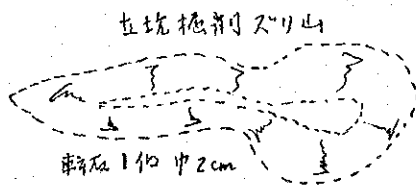 立坑掘削ズリ山
転石1個 巾2cm